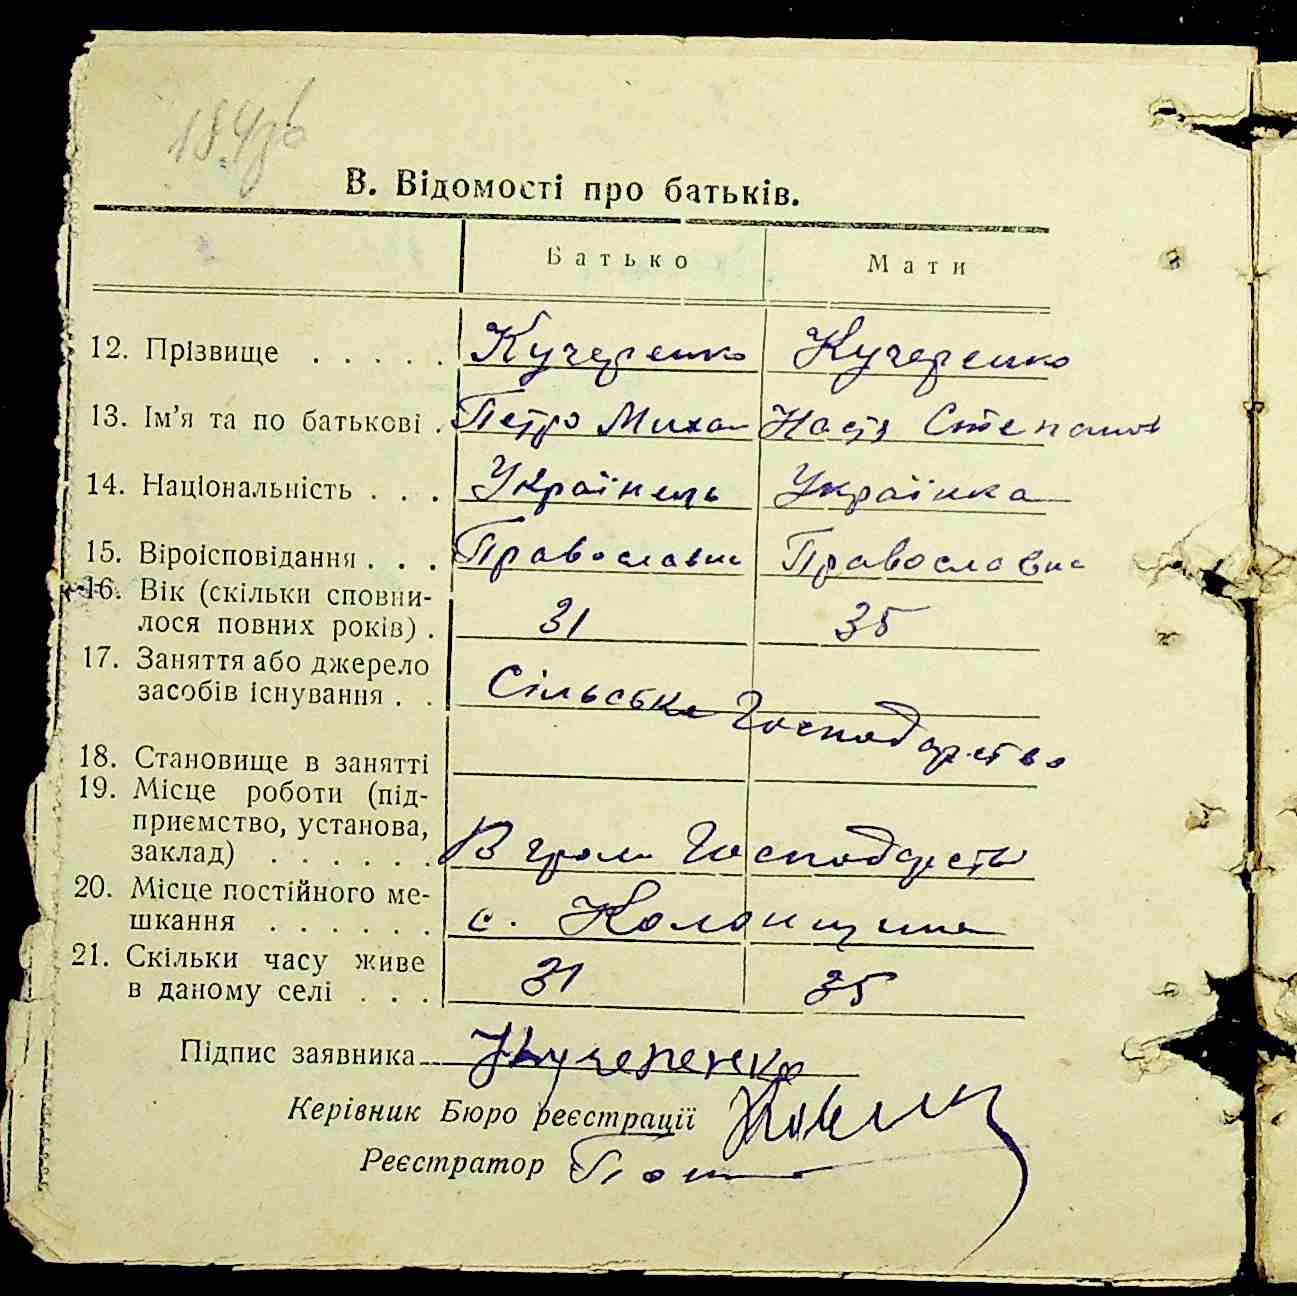 В. Відомості про батьків.
Батько Мати
12. Прізвище . . . . . Кучеренко Кучеренко
13. Ім'я та по батькові . Петро Миха Настя Степанов
14. Національність . . . Українець Українка
15. Віроісповідання . . . Православне Православне
16. Вік (скільки сповни-
лося повних років) . 31 35
17. Заняття або джерело
засобів існування . . Сільське Господарство
18. Становище в занятті
19. Місце роботи (під-
приємство, установа,
заклад) . . . . . . В гром. Господарстві
20. Місце постійного ме-
шкання . . . . . . с. Колонщина
21. Скільки часу живе
в даному селі . . . 31 35
Підпис заявника Кучеренко
Керівник Бюро реєстрації
Реєстратор